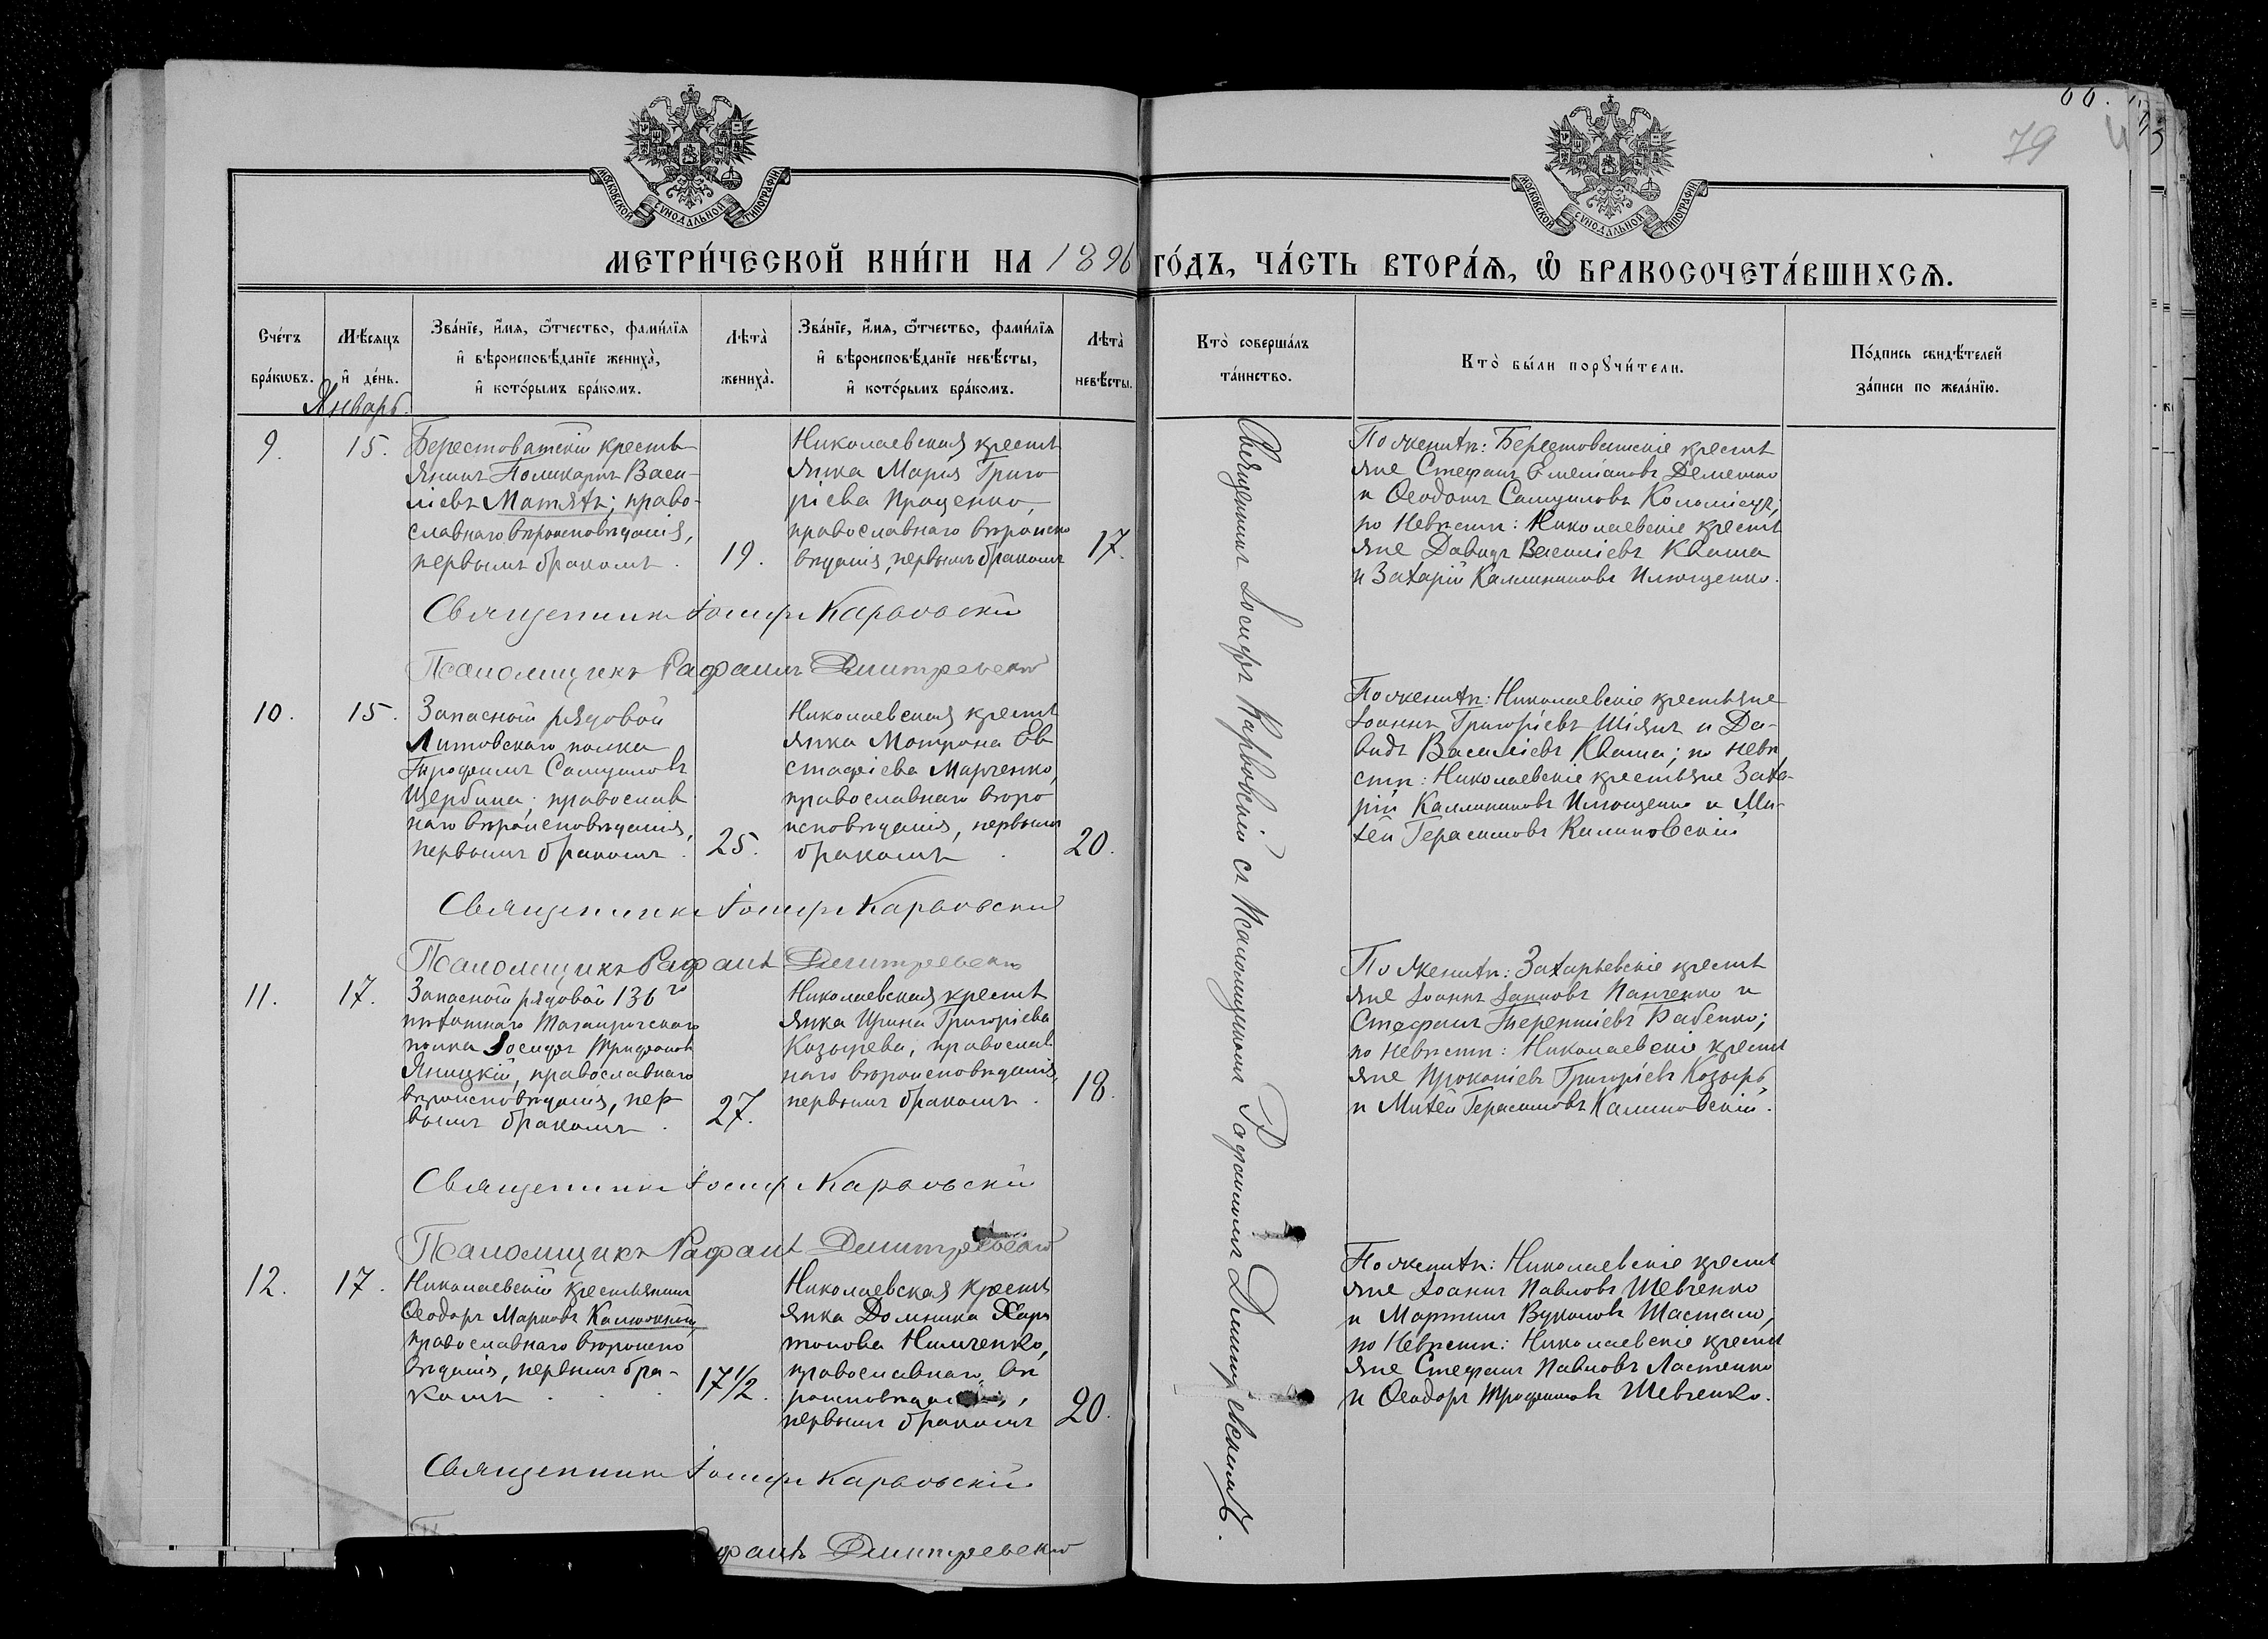 МОСКОВСКОЙ СУНОДАЛЬНОЙ ТИПОГРАФІИ
МОСКОВСКОЙ СУНОДАЛЬНОЙ ТИПОГРАФІИ
66.
79
МЕТРИ́ЧЕСКОЙ КНИ́ГИ НА 1896 ГО́ДЪ, ЧА́СТЬ ВТОРА́Ѧ, Ѽ БРАКОСОЧЕТА́ВШИХСѦ.
Сче́тъ
бра́кѡвъ.
Мѣ́сяцъ
и҆ де́нь.
Зва́нїе, и҆́мя, ѻ҆́тчество, фами́лїя
и҆ вѣроисповѣ́данїе жениха̀,
и҆ кото́рымъ бра́комъ.
Лѣта̀
жениха̀.
Зва́нїе, и҆́мя, ѻ҆́тчество, фами́лїя
и҆ вѣроисповѣ́данїе невѣ́сты,
и҆ кото́рымъ бра́комъ.
Лѣта̀
невѣ́сты.
Кто̀ соверша́лъ
та́инство.
Кто̀ бы́ли порꙋчи́тели.
По́дпись свидѣ́телей
за́писи по жела́нїю.
Январь.
9.
15.
Берестоватскій кресть
янинъ Поликарпъ Васи-
ліевъ Матятъ; право-
славнаго вѣроисповѣданія,
первымъ бракомъ.
19.
Николаевская крестъ
янка Марія Григо
ріева Проценко,
православнаго вѣроиспо
вѣданія, первымъ бракомъ
17.
По женихѣ: Берестоватскіе крестъ
яне Стефанъ Емеліановъ Деменко
и Ѳеодотъ Самуиловъ Коломіецъ;
по невѣстѣ: Николаевскіе крестъ
яне Давидъ Василіевъ Кваша
и Захарій Каллиниковъ Илющенко.
Священникъ Іосифъ Карповскій
Псаломщикъ Рафаилъ Дмитревскій
10.
15.
Запасной рядовой
Литовскаго полка
Трофимъ Самуиловъ
Щербина; православ
наго вѣроисповѣданія,
первымъ бракомъ.
25.
Николаевская крестъ
янка Матрона Ев
стафіева Марченко,
православнаго вѣро
исповѣданія, первымъ
бракомъ.
20.
По женихѣ: Николаевскіе крестьяне
Іоаннъ Григоріевъ Шіянъ и Да-
видъ Василіевъ Кваша; по невѣ
стѣ: Николаевскіе крестьяне Заха-
рій Каллиниковъ Илющенко и Ми-
хей Герасимовъ Калиновскій
Священникъ Іосифъ Карповскій
Псаломщикъ Рафаилъ Дмитревскій
11.
17.
Запасной рядовой 136го
пѣхотнаго Таганрогскаго
полка Іосифъ Трифоновъ
Яницкій, православнаго
вѣроисповѣданія, пер
вымъ бракомъ.
27.
Николаевская крестъ
янка Ирина Григоріева
Козырева, православ
наго вѣроисповѣданія,
первымъ бракомъ.
18.
По женихѣ: Захарьевскіе крестъ
яне Іоаннъ Панченко и
Стефанъ Терентіевъ Бабенко;
по невѣстѣ: Николаевскіе крестъ
яне Прокопіевъ Григоріевъ Козырь,
и Михей Герасимовъ Калиновскій.
Священникъ Іосифъ Карповскій
Псаломщикъ Рафаилъ Дмитревскій
12.
17.
Николаевскій крестьянинъ
Ѳеодоръ Марковъ Калюжный,
православнаго вѣроиспо
вѣданія, первымъ бра-
комъ.
17 1/2.
Николаевская крестъ
янка Домника Хари
тонова Нимченко,
православнаго вѣ
роисповѣданія,
первымъ бракомъ
20.
По женихѣ: Николаевскіе крестъ
яне Іоаннъ Павловъ Шевченко
и Мартинъ Вуколовъ Шастало,
по невѣстѣ: Николаевскіе крестъ
яне Стефанъ Павловъ Ластенко
и Ѳеодоръ Трофимовъ Шевченко.
Священникъ Іосифъ Карповскій
фаилъ Дмитревскій
Священникъ Іосифъ Карповскій съ псаломщикомъ Рафаиломъ Дмитревскимъ.